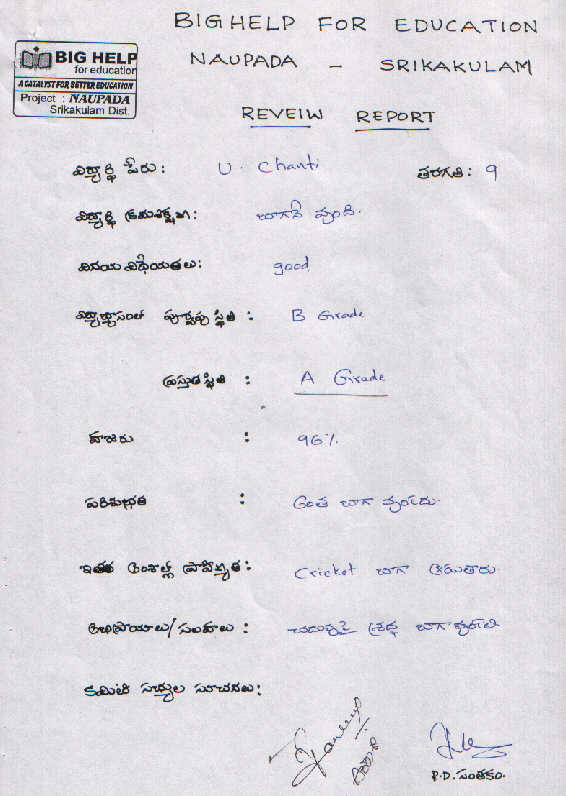 BIG HELP FOR EDUCATION
NAUPADA - SRIKAKULAM
BIG HELP
for education
A CATALYST FOR BETTER EDUCATION
Project : NAUPADA
Srikakulam Dist.
REVEIW REPORT
విద్యార్థి పేరు: U. Chanti తరగతి: 9
విద్యార్థి క్రమశిక్షణ: బాగానే వుంది.
వినయ విధేయతలు: good
విద్యాభ్యాసంలో పూర్వపు స్థితి : B Grade
ప్రస్తుత స్థితి : A Grade
హాజరు : 96%
పరిశుభ్రత : అంత బాగా వుండదు.
ఇతర అంశాల్లో ప్రావీణ్యత: Cricket బాగా ఆడుతారు.
అభిప్రాయాలు/సలహాలు : చదువుపై శ్రద్ధ బాగా వుండాలి
కమిటీ సభ్యుల సూచనలు:
P.D. సంతకం.